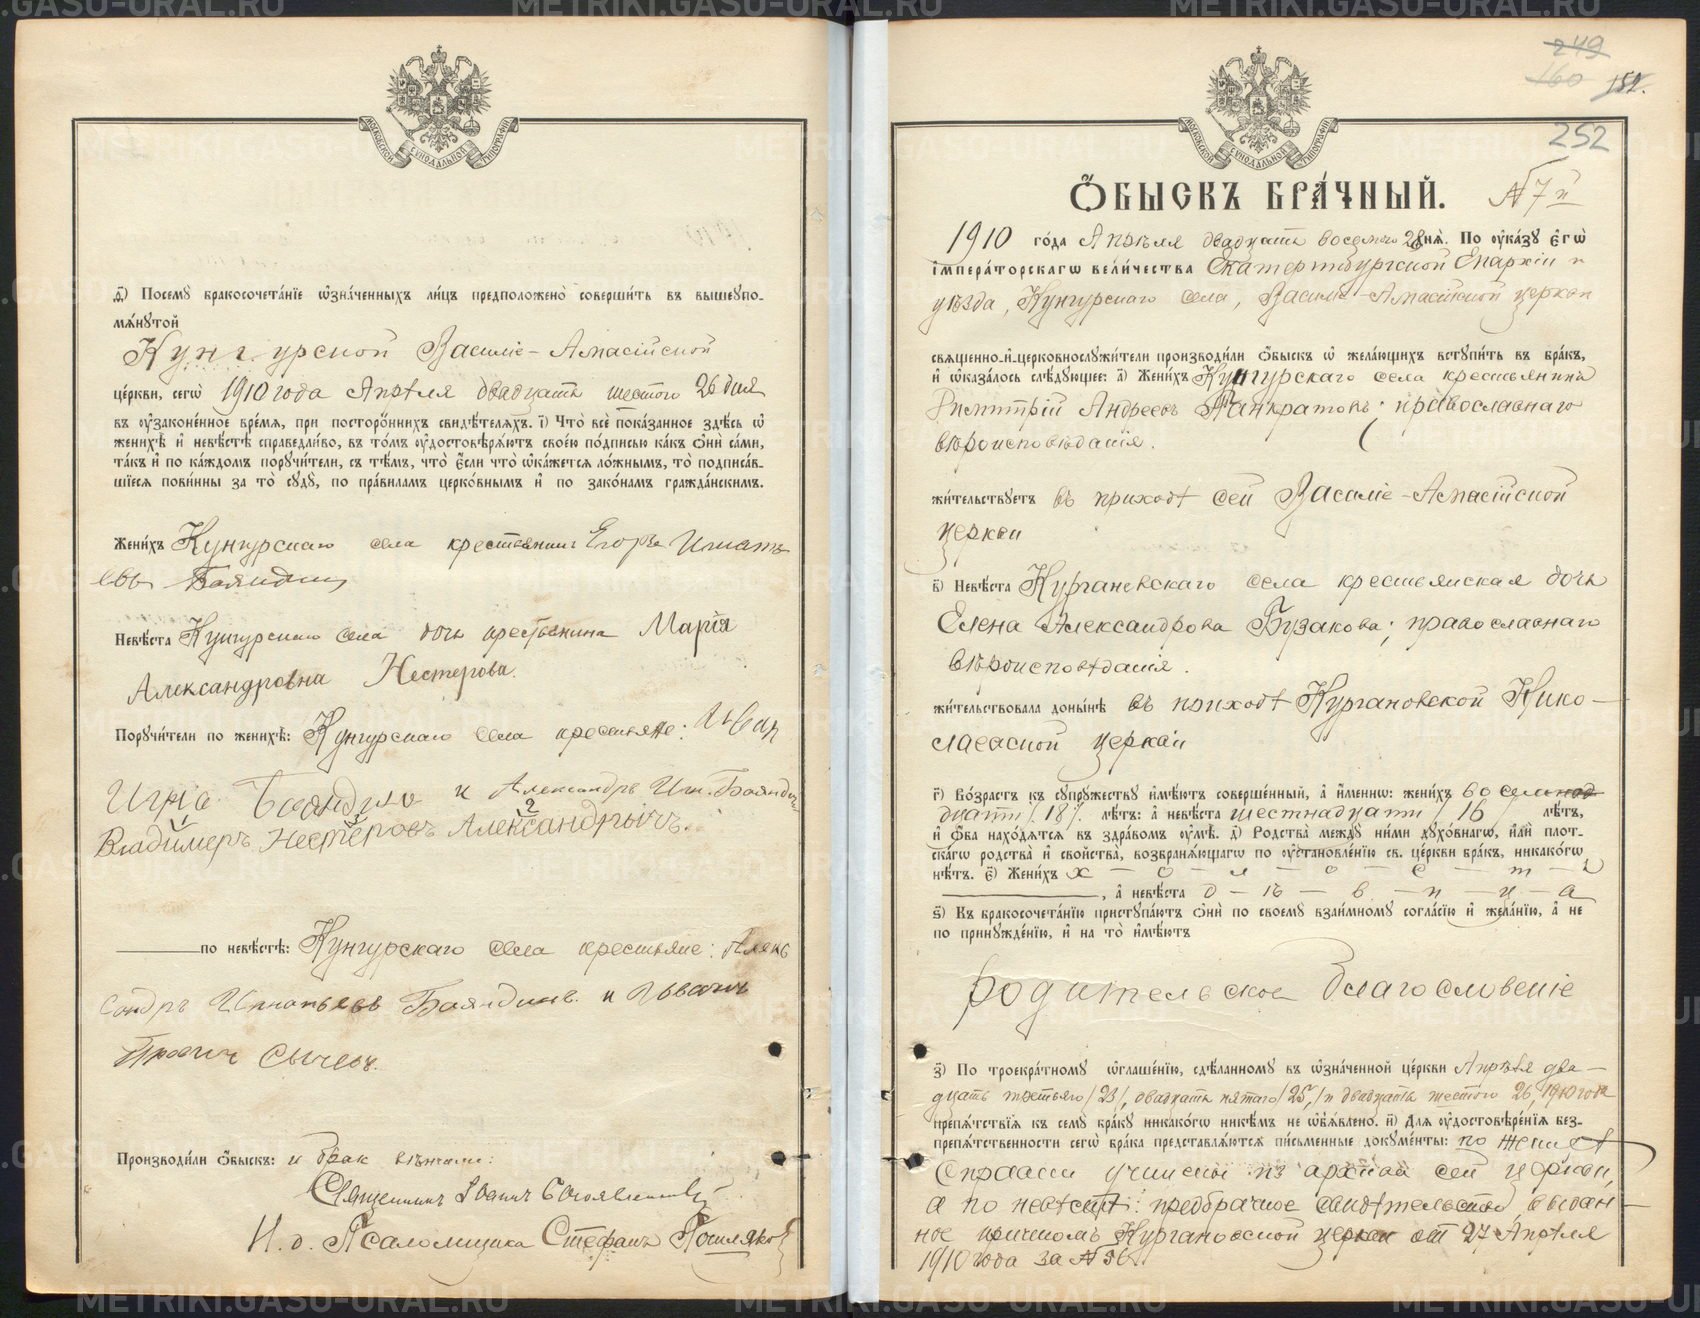 МОСКОВСКОЙ СѴНОДАЛЬНОЙ ТИПОГРАФІИ
д҃) Посемꙋ бракосочета́нїе ѡ҆зна́ченныхъ ли́цъ предположено̀ соверши́ть въ вышеупо-
мѧ́нꙋтой
Кунгурской Василіе-Амасійской
це́ркви, сегѡ̀ 1910 года Апрѣля двадцать шестого 26 дня
въ ᲂу҆зако́ненное вре́мѧ, при посторо́ннихъ свидѣ́телѧхъ. і҃) Что̀ всѐ пока́занное здѣ́сь ѡ҆
женихѣ̀ и҆ невѣ́стѣ справедли́во, въ то́мъ ᲂу҆достовѣрѧ́ютъ свое́ю по́дписью ка́къ ѻ҆нѝ са́ми,
та́къ и҆ по ка́ждомъ порꙋчи́тели, съ тѣ́мъ, что̀ є҆́сли что̀ ѡ҆ка́жетсѧ ло́жнымъ, то̀ подписа́в-
шїесѧ пови́нны за то̀ сꙋдꙋ̀, по пра́виламъ церко́внымъ и҆ по зако́намъ гражда́нскимъ.
Жени́хъ Кунгурскаго села крестьянинъ Егоръ Игнать
евъ Бояндинъ
Невѣ́ста Кунгурскаго села дочь крестьянина Марія
Александровна Нестерова.
Порꙋчи́тели по женихѣ̀: Кунгурскаго села крестьяне: Иван
Игна. Бояндин и Александръ Игн. Бояндинъ
2
Владимеръ Нестеровъ Александрычъ.
по невѣ́стѣ: Кунгурскаго села крестьяне: Алек
сандръ Игнатьевъ Бояндинъ и Иванъ
Сычевъ.
Производи́ли ѻ҆́быскъ: и брак вѣнчали:
Священникъ Іоаннъ Богоявленскій
И. д. Псаломщика Стефанъ
249
160
152.
252
МОСКОВСКОЙ СѴНОДАЛЬНОЙ ТИПОГРАФІИ
Ѻ҆́БЫСКЪ БРА́ЧНЫЙ. № 7й
1910 го́да Апрѣля двадцать восемого 28 днѧ̀. По ᲂу҆ка́зꙋ є҆гѡ̀
і҆мпера́торскагѡ вели́чества Екатеринбургской Епархіи и
уѣзда, Кунгурскаго села, Василіе-Амасійской церкви
свѧщенно-и҆-церковнослꙋжи́тели производи́ли ѻ҆́быскъ ѡ҆ жела́ющихъ встꙋпи́ть въ бра́къ,
и҆ ѡ҆каза́лось слѣ́дꙋющее: а҃) Жени́хъ Кунгурскаго села крестьянинъ
Димитрій Андреевъ Панкратовъ; православнаго
вѣроисповѣданія.
жи́тельствꙋетъ въ приходѣ сей Василіе-Амасійской
церкви
в҃) Невѣ́ста Кургановскаго села крестьянская дочь
Елена Александрова Бузакова; православнаго
вѣроисповѣданія.
жи́тельствовала доны́нѣ въ приходѣ Кургановской Нико-
лаевской церкви
г҃) Во́зрастъ къ сꙋпрꙋ́жествꙋ и҆мѣ́ютъ соверше́нный, а҆ и҆́менно: жени́хъ восемнад
цати /18/. лѣ́тъ: а҆ невѣ́ста шестнадцати / 16 / лѣ́тъ,
и҆ ѻ҆́ба нахо́дѧтсѧ въ здра́вомъ ᲂу҆мѣ̀. д҃) Родства̀ междꙋ̀ ни́ми дꙋхо́внагѡ, и҆лѝ плот-
ска́гѡ родства̀ и҆ сво́йства, возбранѧ́ющагѡ по ᲂу҆становле́нїю св. це́ркви бра́къ, никако́гѡ
нѣ́тъ. є҃) Жени́хъ х — о — л — о — с — т — ъ
, а҆ невѣ́ста д — ѣ — в — и — ц — а
ѕ҃) Къ бракосочета́нїю пристꙋпа́ютъ ѻ҆нѝ по своемꙋ̀ взаи́мномꙋ согла́сїю и҆ жела́нїю, а҆ не
по принꙋжде́нїю, и҆ на то̀ и҆мѣ́ютъ
родительское благословеніе
з҃) По троекра́тномꙋ ѡ҆глаше́нїю, сдѣ́ланномꙋ въ ѡ҆зна́ченной це́ркви Апрѣля два-
дцать третьяго /23/, двадцать пятаго /25/, и двадцать шестого 26, 1910 года
препѧ́тствїѧ къ семꙋ̀ бра́кꙋ никако́гѡ никѣ́мъ не ѡ҆б̾ѧ́влено. и҃) Длѧ ᲂу҆достовѣре́нїѧ без-
препѧ́тственности сегѡ̀ бра́ка представлѧ́ютсѧ пи́сьменные докꙋме́нты: по женихѣ
справки учинены из архива сей церкви,
а по невѣстѣ: предбрачное свидѣтельство, выдан-
ное причтомъ Кургановской церкви от 27 Апрѣля
1910 года за № 56
METRIKI.GASU-URAL.RU